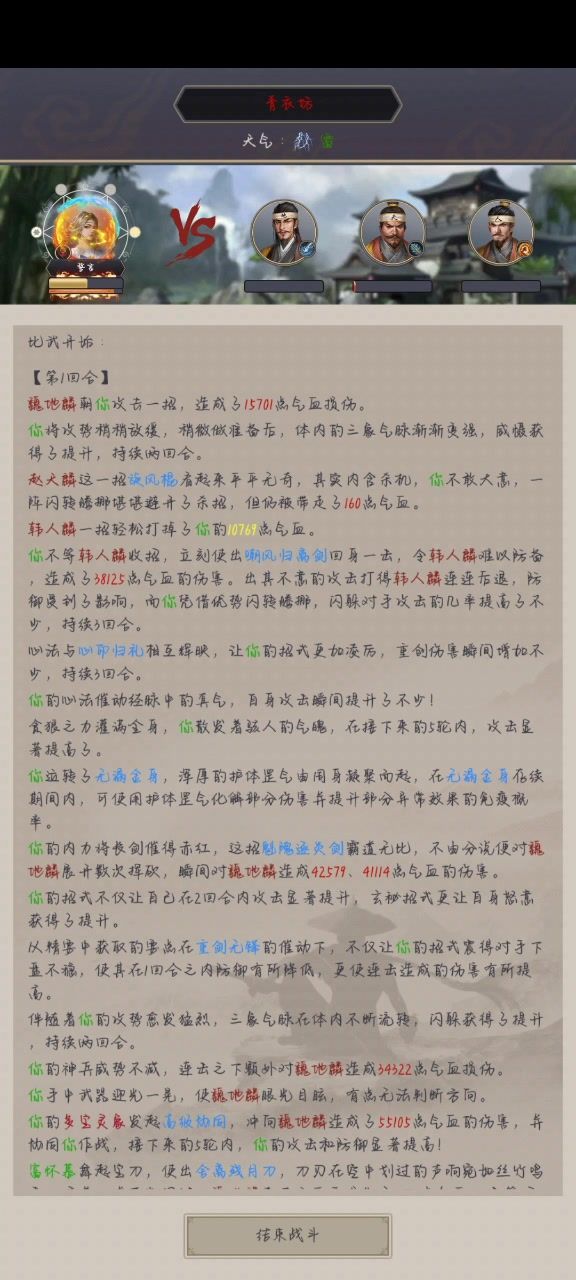 青衣坊
天气：
VS
比武开始：
【第1回合】
魏地麟朝你攻去一招，造成了15701点气血损伤。
你将攻势稍稍放缓，稍微做准备后，体内的三象气脉渐渐变强，威慑获
得了提升，持续两回合。
赵天麟这一招旋风棍看起来平平无奇，其实内含杀机，你不敢大意，一
阵闪转腾挪堪堪避开了杀招，但仍被带走了160点气血。
韩人麟一招轻松打掉了你的10769点气血。
你不等韩人麟收招，立刻使出啸风归离剑回身一击，令韩人麟难以防备
，造成了38125点气血的伤害。出其不意的攻击打得韩人麟连连后退，防
御受到了影响，而你凭借优势闪转腾挪，闪躲对手攻击的几率提高了不
少，持续3回合。
心法与心印归礼相互辉映，让你的招式更加凌厉，重创伤害瞬间增加不
少，持续3回合。
你的心法催动经脉中的真气，自身攻击瞬间提升了不少！
贪狼之力灌满全身，你散发着骇人的气魄，在接下来的5轮内，攻击显
著提高了。
你运转了无漏金身，浑厚的护体罡气由周身凝聚而起，在无漏金身存续
期间内，可使用护体罡气化解部分伤害并提升部分异常效果的免疫概
率。
你的内力将长剑催得赤红，这招魁隗逐炎剑霸道无比，不由分说便对魏
地麟展开数次挥砍，瞬间对魏地麟造成42579、41114点气血的伤害。
你的招式不仅让自己在2回合内攻击显著提升，玄秘招式更让自身怒意
获得了提升。
以精要中获取的要点在重剑无锋的催动下，不仅让你的招式震得对手下
盘不稳，使其在1回合之内防御有所降低，更使连击造成的伤害有所提
高。
伴随着你的攻势愈发猛烈，三象气脉在体内不断流转，闪躲获得了提升
，持续两回合。
你的神兵威势不减，连击之下额外对魏地麟造成34322点气血损伤。
你手中武器亚光一晃，使魏地麟眼光目眩，有点无法判断方向。
你的多宝灵象发起高级协同，冲向魏地麟造成了55105点气血的伤害，并
协同你作战，接下来的5轮内，你的攻击和防御显著提高！
富怀基舞起宝刀，使出含离残月刀，刀刃在空中划过的声响宛如丝竹鸣
结束战斗